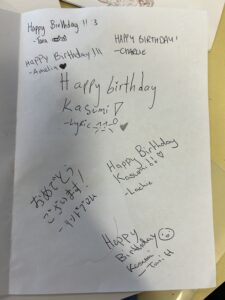 Happy Birthday !! :3
- Tara
HAPPY BIRTHDAY!
-CHARLIE
HAPPY Birthday!!!
-Amelia ♥
Happy birthday
Kasumi!
-Lyric
♥
Happy Birthday
Kasumi!!
おめでとう
ございます!
Happy
Birthday
Kasumi
- Tori H